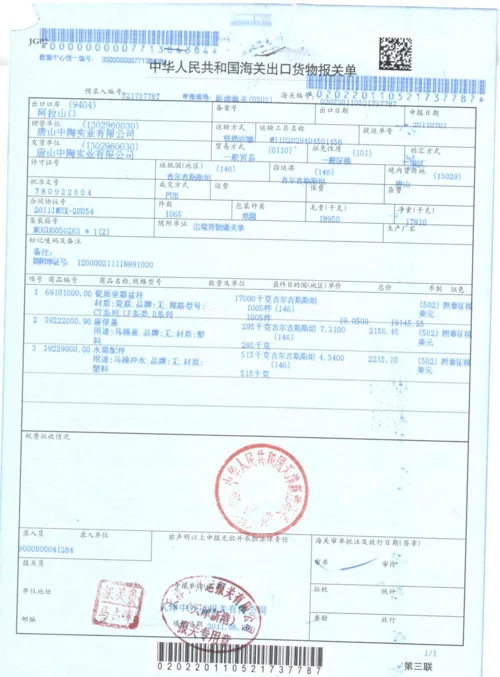 JG02
*000000000771384384*
数据中心统一编号:
中华人民共和国海关出口货物报关单
预录入编号 321737787 申报海关: 新港海关(0202) 海关编号: 020220110521737787
出口口岸 (9404) 备案号 出口日期 申报日期
阿拉山口 20110701
经营单位 (1302960030) 运输方式 运输工具名称 提运单号
唐山中陶实业有限公司 铁路运输
发货单位 (1302960030) 贸易方式 (0110) 征免性质 (101) 结汇方式
唐山中陶实业有限公司 一般贸易 一般征税
许可证号 运抵国(地区) (146) 指运港 (146) 境内货源地 (13029)
吉尔吉斯斯坦 吉尔吉斯斯坦 唐山
批准文号 成交方式 运费 保费 杂费
780922804 FOB
合同协议号 件数 包装种类 毛重(千克) 净重(千克)
2011IMEX-ZH054 1065 纸箱 18950 17810
集装箱号 随附单证 生产厂家
MOGU0050263 * 1(2) 出境货物通关单
标记唛码及备注
随附单证号: 120000211118891000
项号 商品编号 商品名称,规格型号 数量及单位 最终目的国(地区)单价 总价 币制 征免
1 69101000.00 瓷质坐箱盆柱 17000千克吉尔吉斯斯坦 (502) 照章征税
材质:瓷质.品牌:无.规格型号: 1005件 (146) 美元
CT系列,LF系类,D系列 1005件 19.0500 19145.25
2 39222000.90 座便盖 295千克吉尔吉斯斯坦 7.3100 2156.45 (502) 照章征税
用途:马桶盖.品牌:无.材质:塑 (146) 美元
料 295千克
3 39229000.00 水箱配件 515千克吉尔吉斯斯坦 4.3400 2235.10 (502) 照章征税
用途:马桶冲水.品牌:无.材质: (146) 美元
塑料 515千克
税费征收情况
录入员 录入单位 兹声明以上申报无讹并承担法律责任 海关审单批注及放行日期(签章)
0000000041284
报关员 审单 审价
申报单位
单位地址 征税 统计
邮编 填制日期 2011.06. 查验 放行
报关专用章
020220110521737787
1/1
第三联